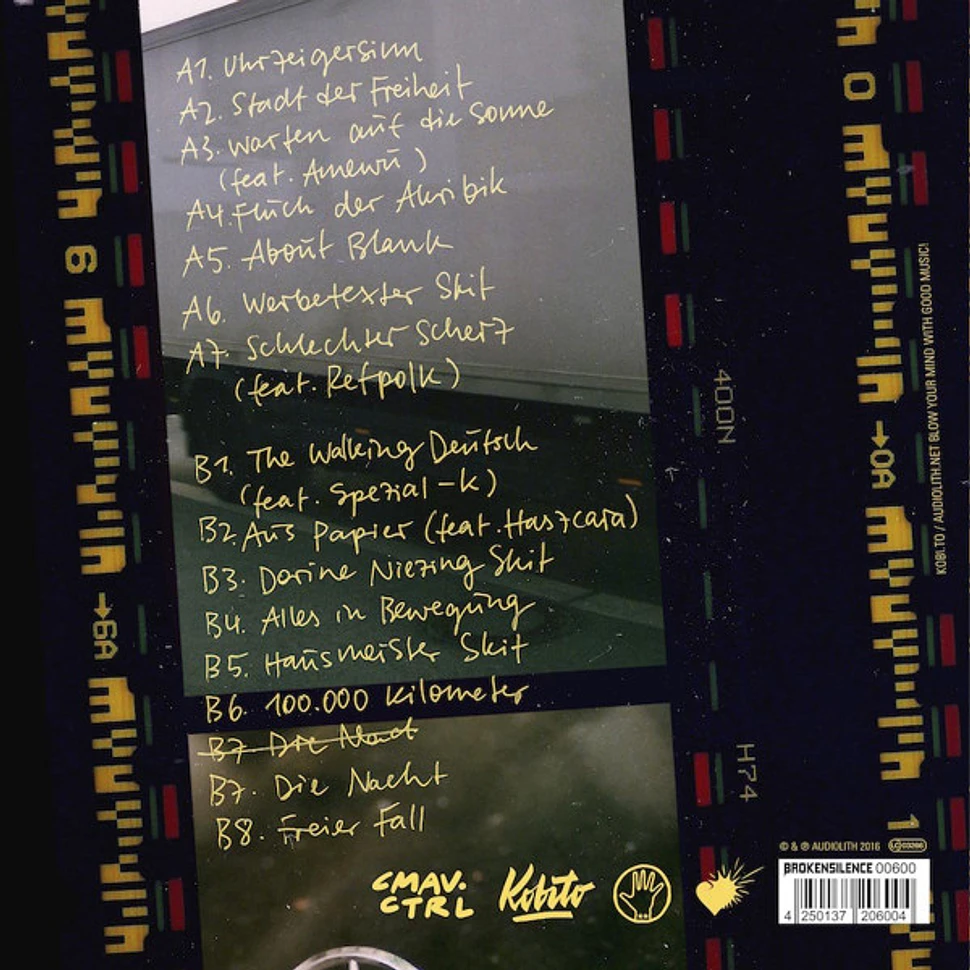 A1. Uhrzeigersinn
A2. Stadt der Freiheit
A3. Warten auf die Sonne
(feat. Amewu)
A4. Fluch der Akribik
A5. About Blank
A6. Werbetexter Skit
A7. Schlechter Scherz
(feat. Refpolk)
B1. The Walking Deutsch
(feat. Spezial-K)
B2. Aus Papier (feat. Haszcara)
B3. Dorine Niezing Skit
B4. Alles in Bewegung
B5. Hausmeister Skit
B6. 100.000 Kilometer
B7 Die Nact
B7. Die Nacht
B8. Freier Fall
CMAV.
CTRL
Kobito
6
→6A
400N
H74
0
→0A
1
KOBI.TO / AUDIOLITH.NET BLOW YOUR MIND WITH GOOD MUSIC!
© & ℗ AUDIOLITH 2016 LC 03266
BROKENSILENCE 00600
4 250137 206004